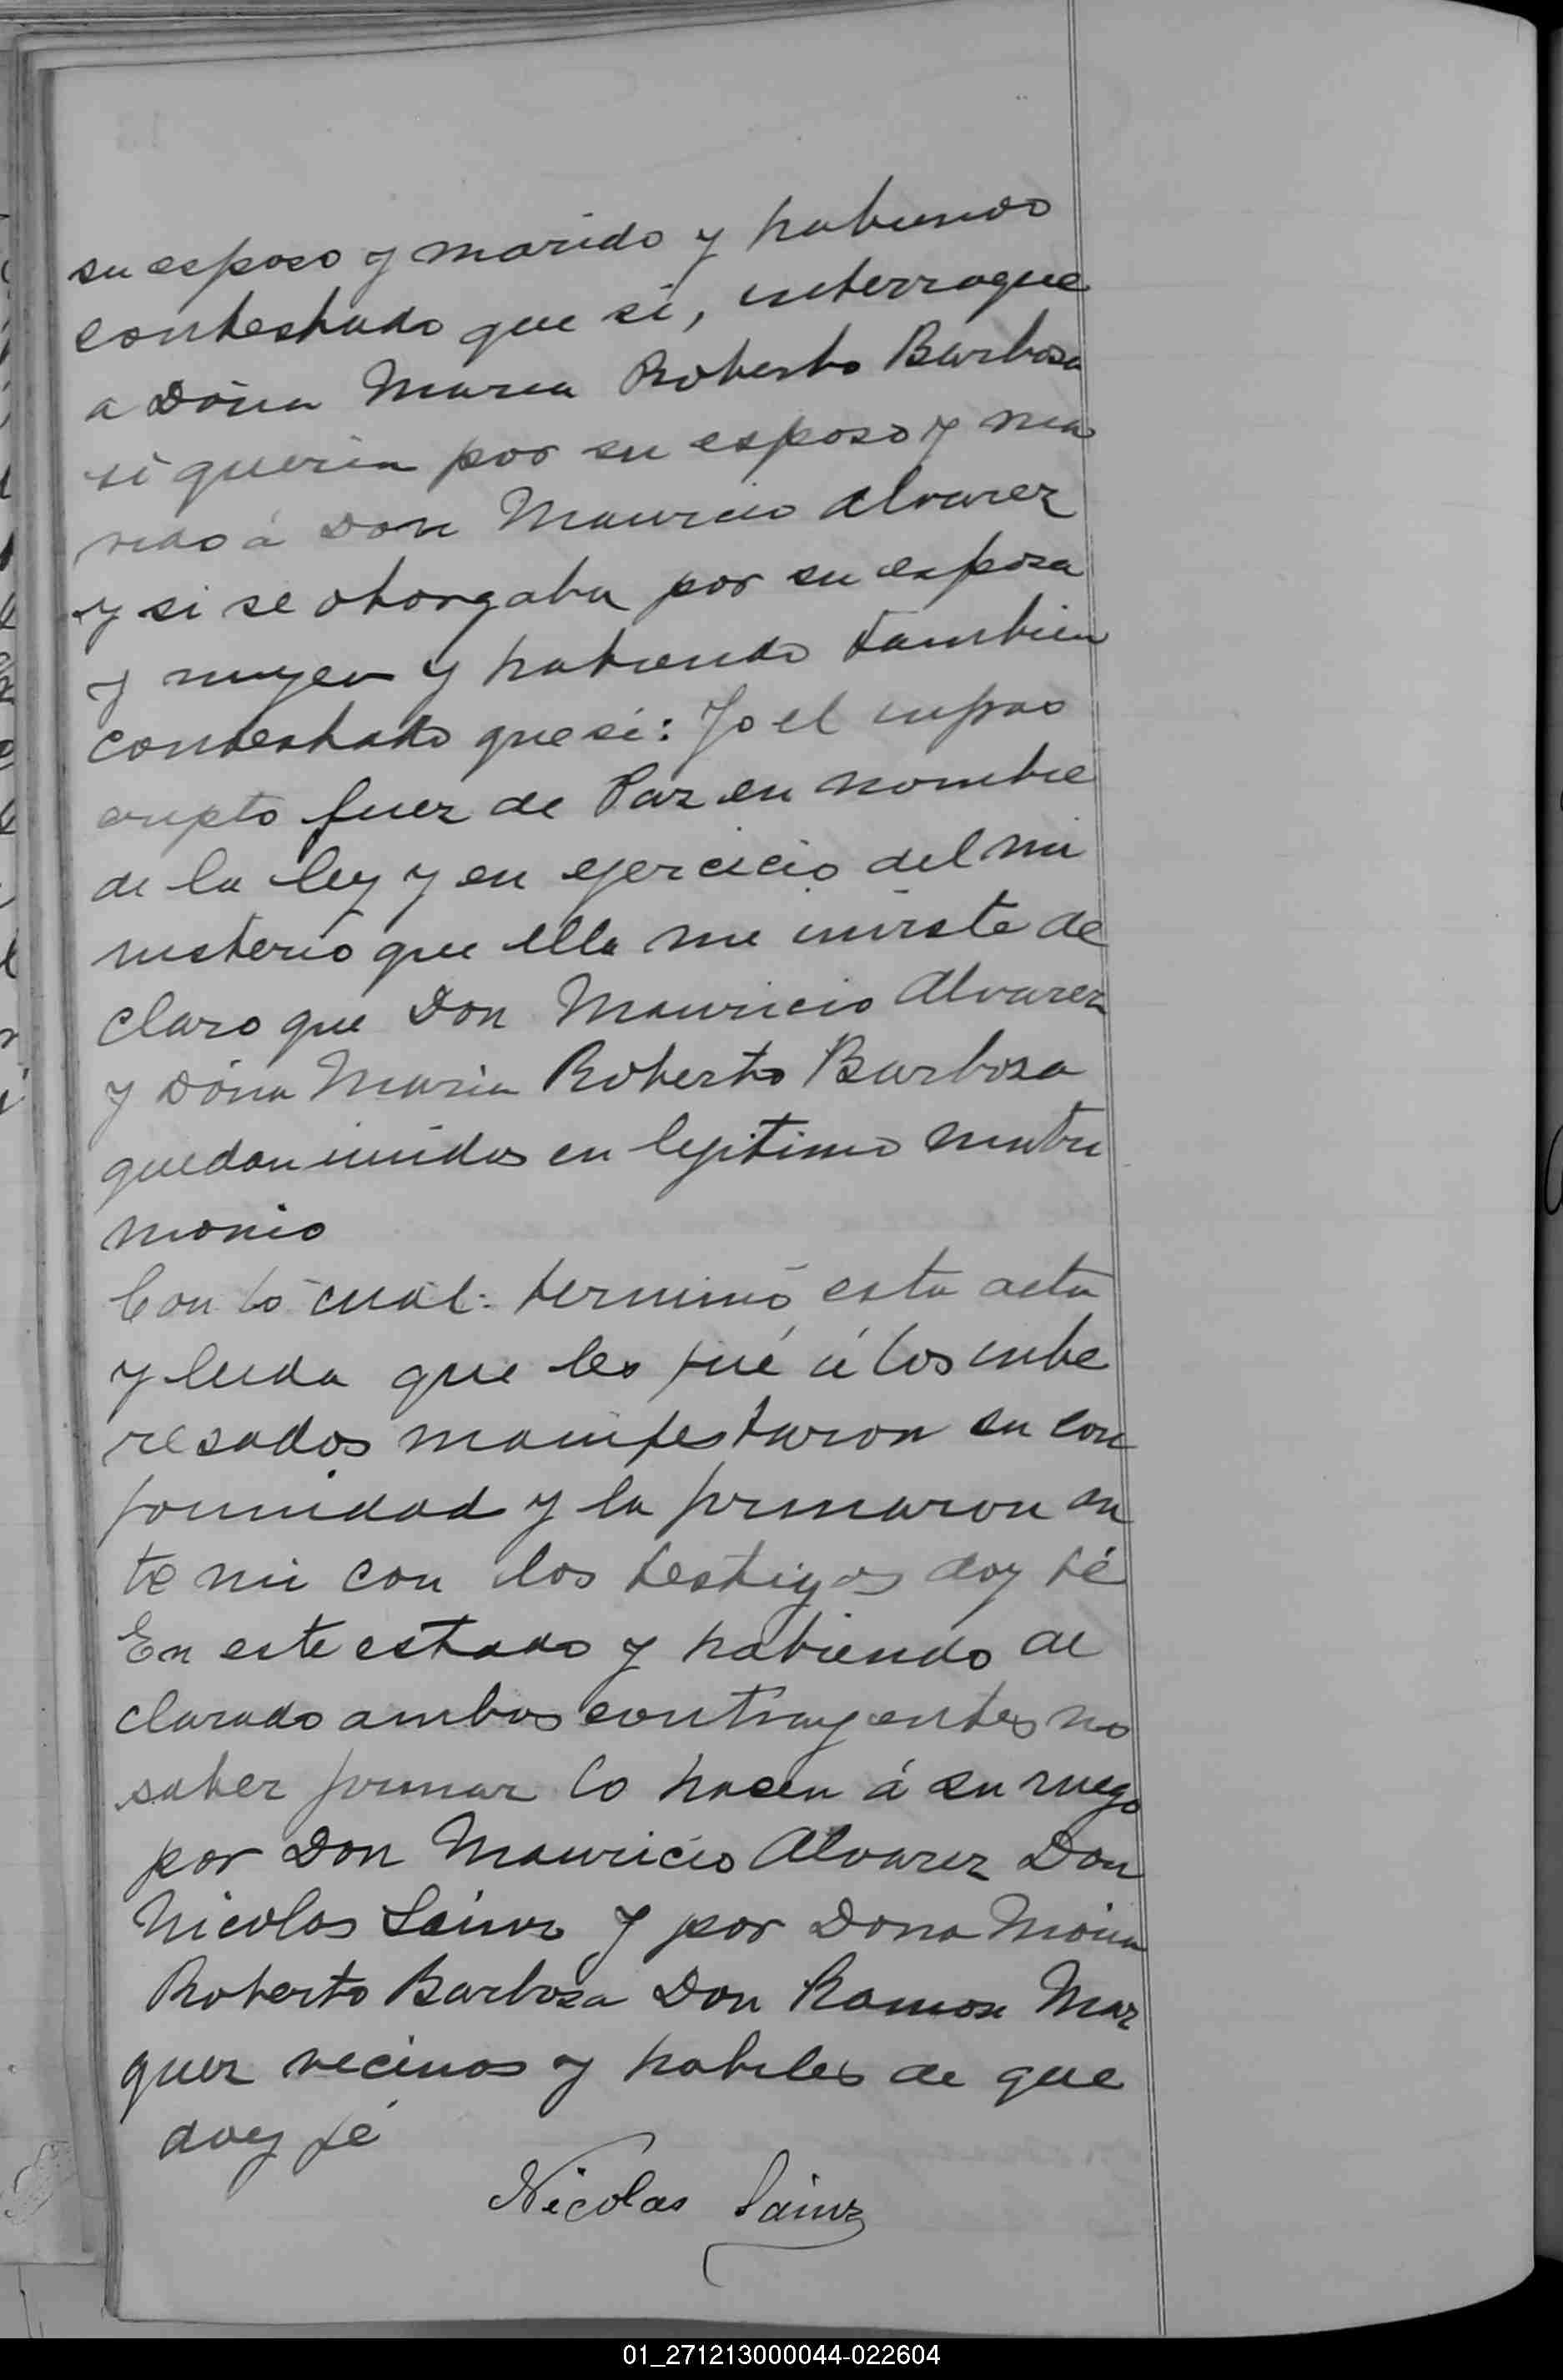 su esposo y marido y habiendo
contestado que si, interrogue
a Doña Maria Roberto Barbosa
si queria por su esposo y ma
rido á Don Mauricio Alvarez
y si se otorgaba por su esposa
y mujer y habiendo tambien
contestado que si: Yo el infras
cripto Juez de Paz en nombre
de la ley y en ejercicio del mi
nisterio que ella me inviste de
claro que Don Mauricio Alvarez
y Doña Maria Roberto Barbosa
quedan unidos en legitimo matri
monio
Con lo cual: terminó esta acta
y leida que les fué á los inte
resados manifestaron su con
formidad y la firmaron an
te mi con los testigos doy fé
En este estado y habiendo de
clarado ambos contrayentes no
saber firmar lo hacen á su ruego
por Don Mauricio Alvarez Don
Nicolas Sainz y por Dona Maria
Roberto Barbosa Don Ramon Mar
quez vecinos y habiles de que
doy fé
Nicolas Sainz
01_271213000044-022604